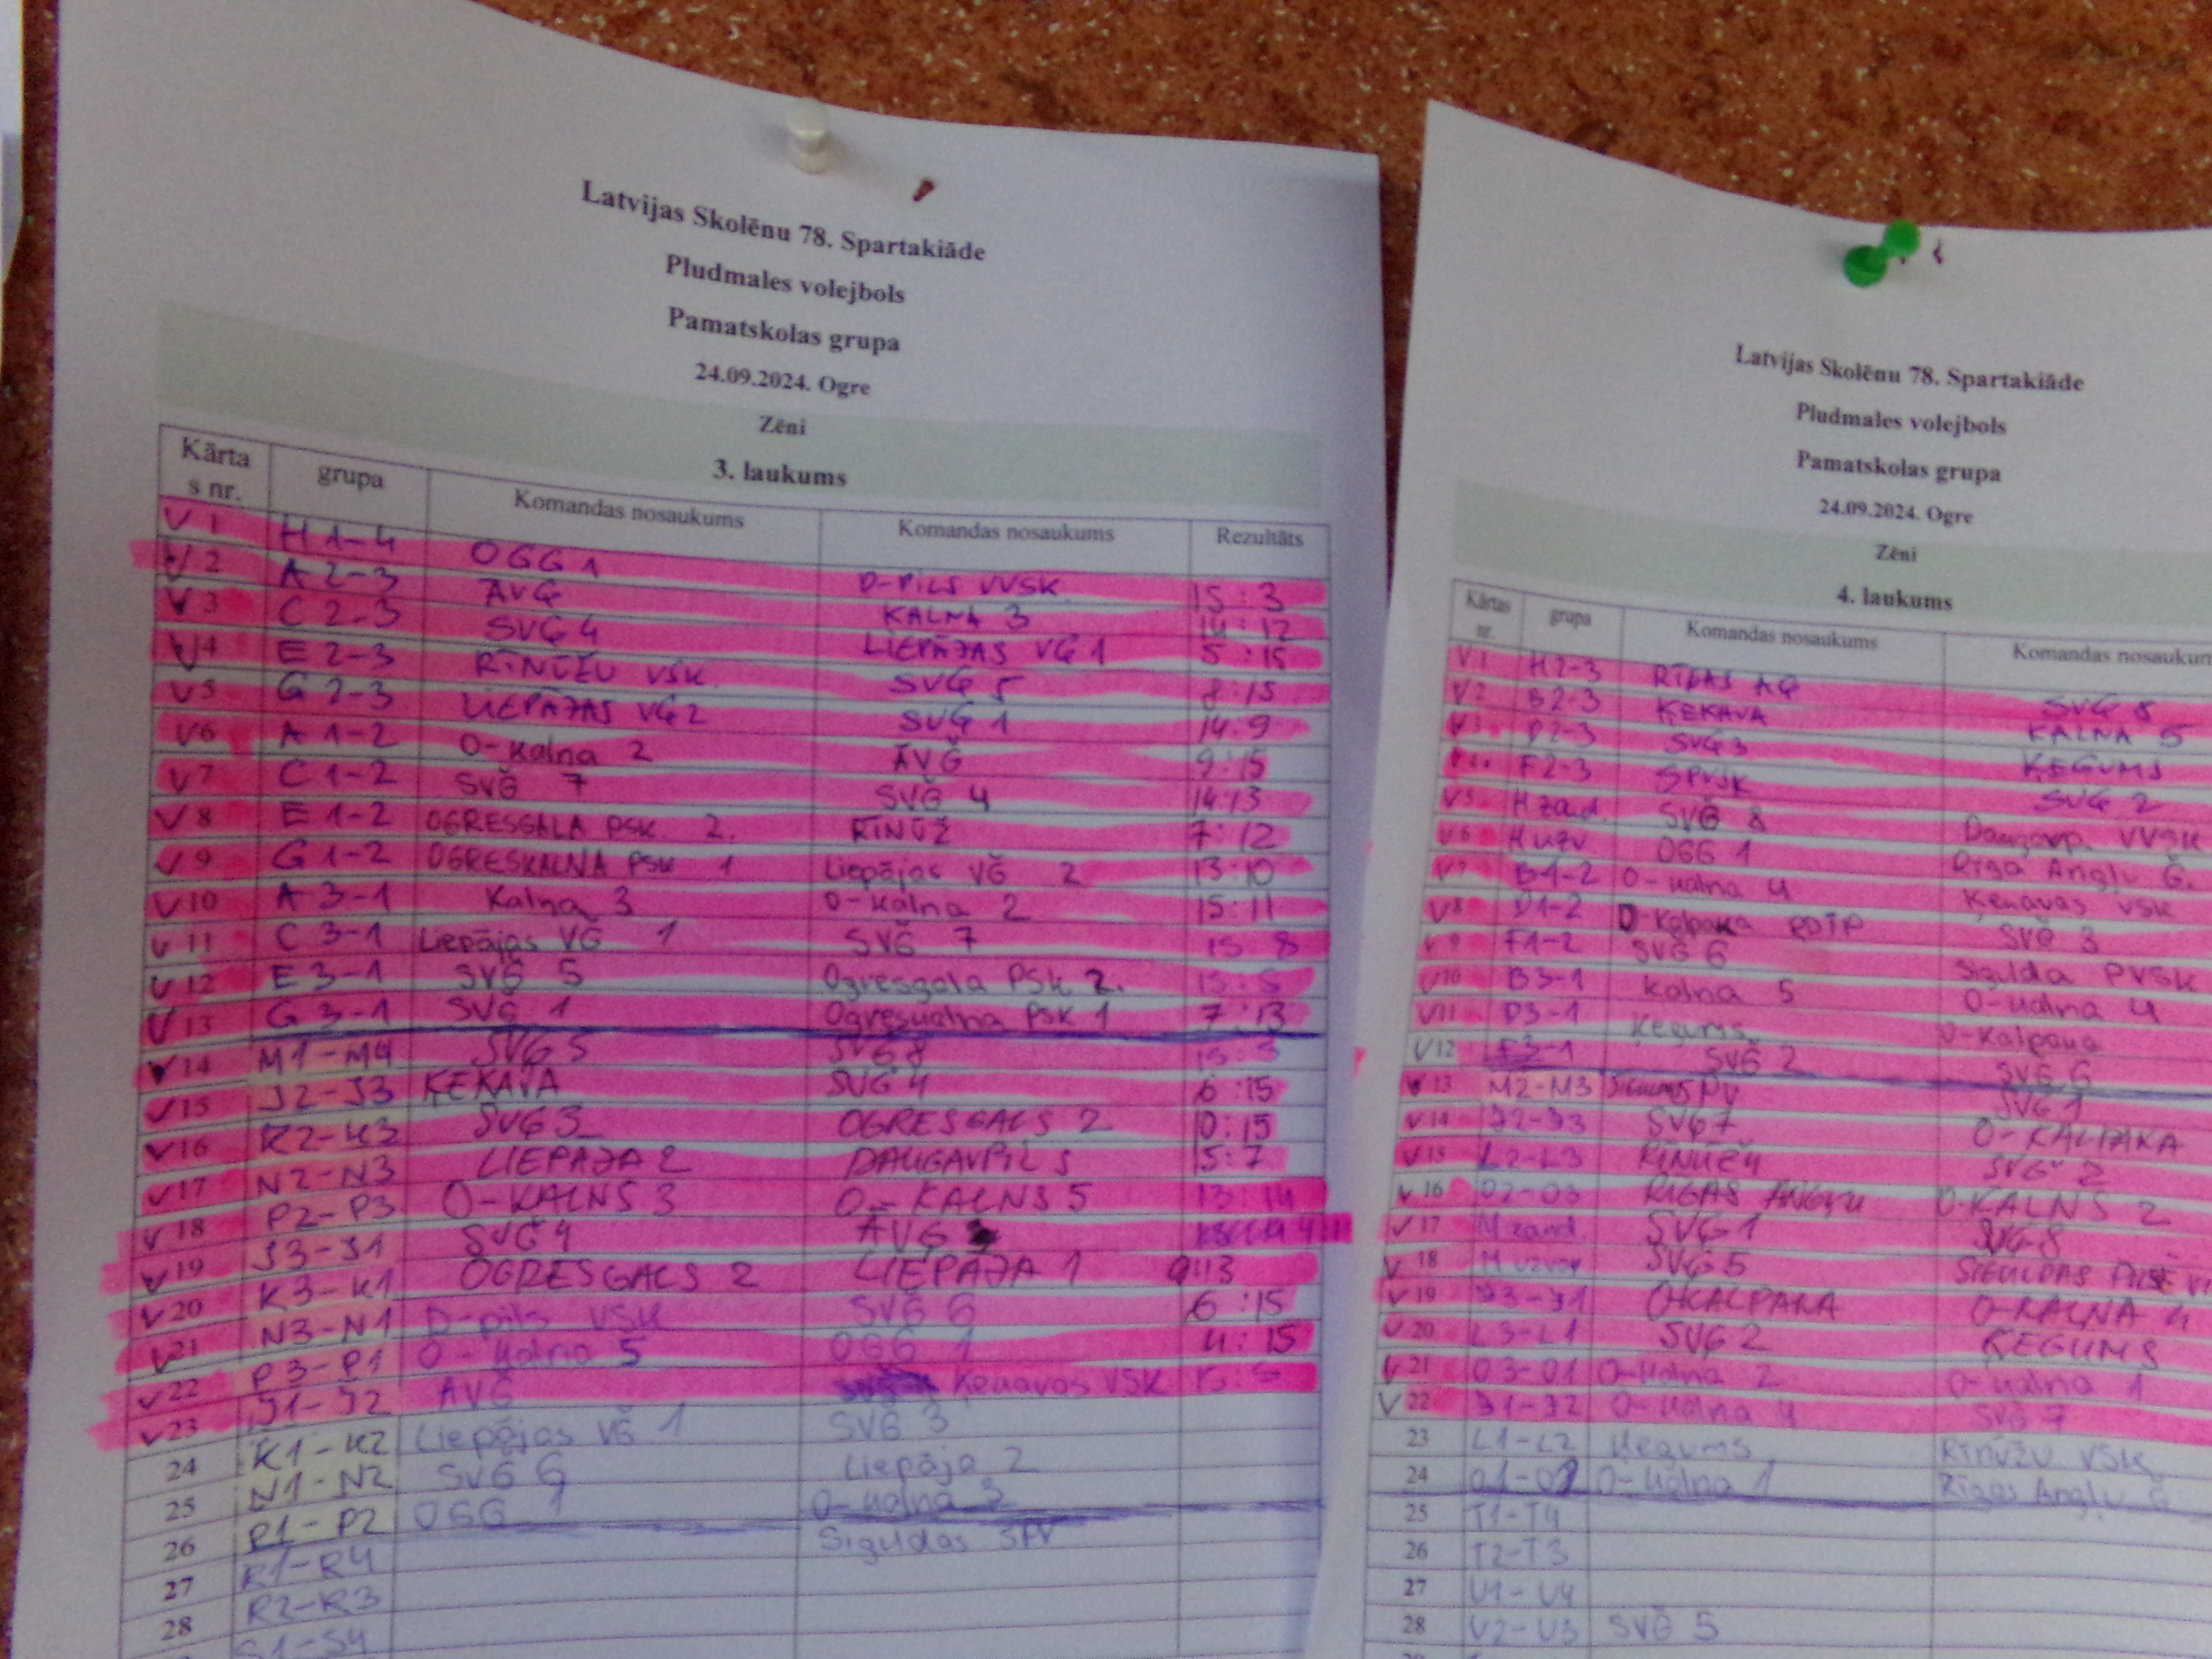 Latvijas Skolēnu 78. Spartakiāde
Pludmales volejbols
Pamatskolas grupa
24.09.2024. Ogre
Zēni
3. laukums
Kārta s nr. grupa Komandas nosaukums Komandas nosaukums Rezultāts
V 1 H 1-4 OGG 1 D-PILS VVSK 15:3
V 2 A 2-3 AVĢ KALNA 3 14:12
V 3 C 2-3 SVĢ 4 LIEPĀJAS VĢ 1 5:15
V 4 E 2-3 RĪNŪŽU VSK. SVĢ 5 8:15
V 5 G 2-3 LIEPĀJAS VĢ 2 SVĢ 1 14:9
V 6 A 1-2 O-kalna 2 ĀVĢ 9:15
V 7 C 1-2 SVĢ 7 SVĢ 4 14:13
V 8 E 1-2 OGRESGALA PSK 2. RĪNŪŽ 7:12
V 9 G 1-2 OGRESKALNA PSK 1 Liepājas VĢ 2 13:10
V 10 A 3-1 Kalna 3 O-kalna 2 15:11
V 11 C 3-1 Liepājas VĢ 1 SVĢ 7 15:8
V 12 E 3-1 SVĢ 5 Ogresgala PSK 2. 15:5
V 13 G 3-1 SVĢ 1 Ogreskalna PSK 1 7:13
V 14 M1-M4 SVĢ 5 SVĢ 8
V 15 J2-J3 ĶEKAVA SVĢ 4 6:15
V 16 K2-K3 SVĢ 3 OGRESGALS 2 10:15
V 17 N2-N3 LIEPĀJA 2 DAUGAVPILS 15:7
V 18 P2-P3 O-KALNS 3 O-KALNS 5 13:14
V 19 J3-J1 SVĢ 4 ĀVĢ
V 20 K3-K1 OGRESGALS 2 LIEPĀJA 1 9:13
V 21 N3-N1 D-pils VSK SVĢ 6 6:15
V 22 P3-P1 O-kalna 5 OGG 1 4:15
V 23 J1-J2 AVĢ Ķekavas VSK
24 K1-K2 Liepājas VĢ 1 SVĢ 3
25 N1-N2 SVĢ 6 Liepāja 2
26 P1-P2 OGG 1 O-kalna 3
27 R1-R4 Siguldas SPV
28 R2-R3
S1-S4
Latvijas Skolēnu 78. Spartakiāde
Pludmales volejbols
Pamatskolas grupa
24.09.2024. Ogre
Zēni
4. laukums
Kārtas nr. grupa Komandas nosaukums Komandas nosaukum
V 1 H2-3 RĪGAS AĢ SVĢ 8
V 2 B2-3 ĶEKAVA KALNA 5
V 3 D2-3 SVĢ 3 ĶEGUMS
V 4 F2-3 SPVSK SVĢ 2
V 5 H zaud. SVĢ 8 Daugavp. VVSK
V 6 H uzv OGG 1 Rīga Angļu Ģ.
V 7 B1-2 O-kalna 4 Ķekavas VSK
V 8 D1-2 O-Kalpaka RDTP SVĢ 3
V 9 F1-2 SVĢ 6 Sigulda PVSK
V 10 B3-1 Kalna 5 O-kalna 4
V 11 D3-1 Ķegums O-Kalpaka
V 12 F3-1 SVĢ 2 SVĢ 6
V 13 M2-M3 SVĢ 1
V 14 I2-I3 SVĢ 7 O-KALPAKA
V 15 L2-L3 RĪNŪŽU SVĢ 2
V 16 O2-O3 RĪGAS ANGĻU O-KALNS 2
V 17 M zaud. SVĢ 1 SVĢ 8
V 18 M uzv SVĢ 5 SIGULDAS
V 19 I3-I1 O-KALPAKA O-KALNA 4
V 20 L3-L1 SVĢ 2 ĶEGUMS
V 21 O3-O1 O-kalna 2 O-kalna 1
V 22 I1-I2 O-kalna 4 SVĢ 7
23 L1-L2 Ķegums Rīnūžu VSK
24 O1-O2 O-kalna 1 Rīgas Angļu Ģ
25 T1-T4
26 T2-T3
27 U1-U4
28 U2-U3 SVĢ 5